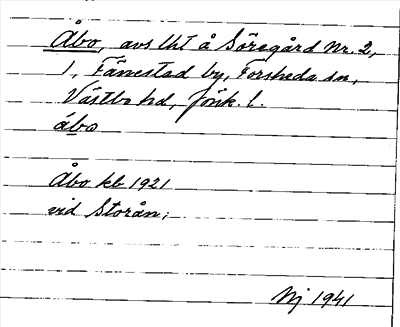 Åbo, avs lht å Söregård Nr. 2,
1, Fänestad by, Forsheda sn,
Västbo hd, Jönk. l.
åbo
Åbo kb 1921
vid Storån;
Nj 1941